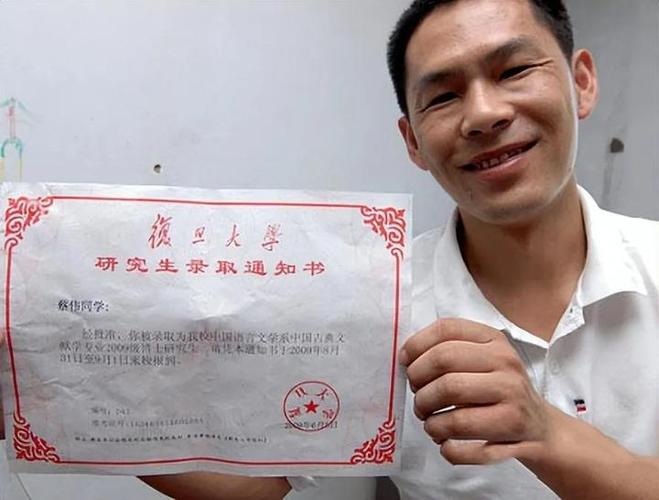 復旦大學
研究生录取通知书
蔡伟同学:
经批准,你被录取为我校中国语言文学系中国古典文
献学专业2009级博士研究生。请凭本通知书于2009年8月
31日至9月1日来校报到。
复旦大学
编号:
准考证号:
2009年6月